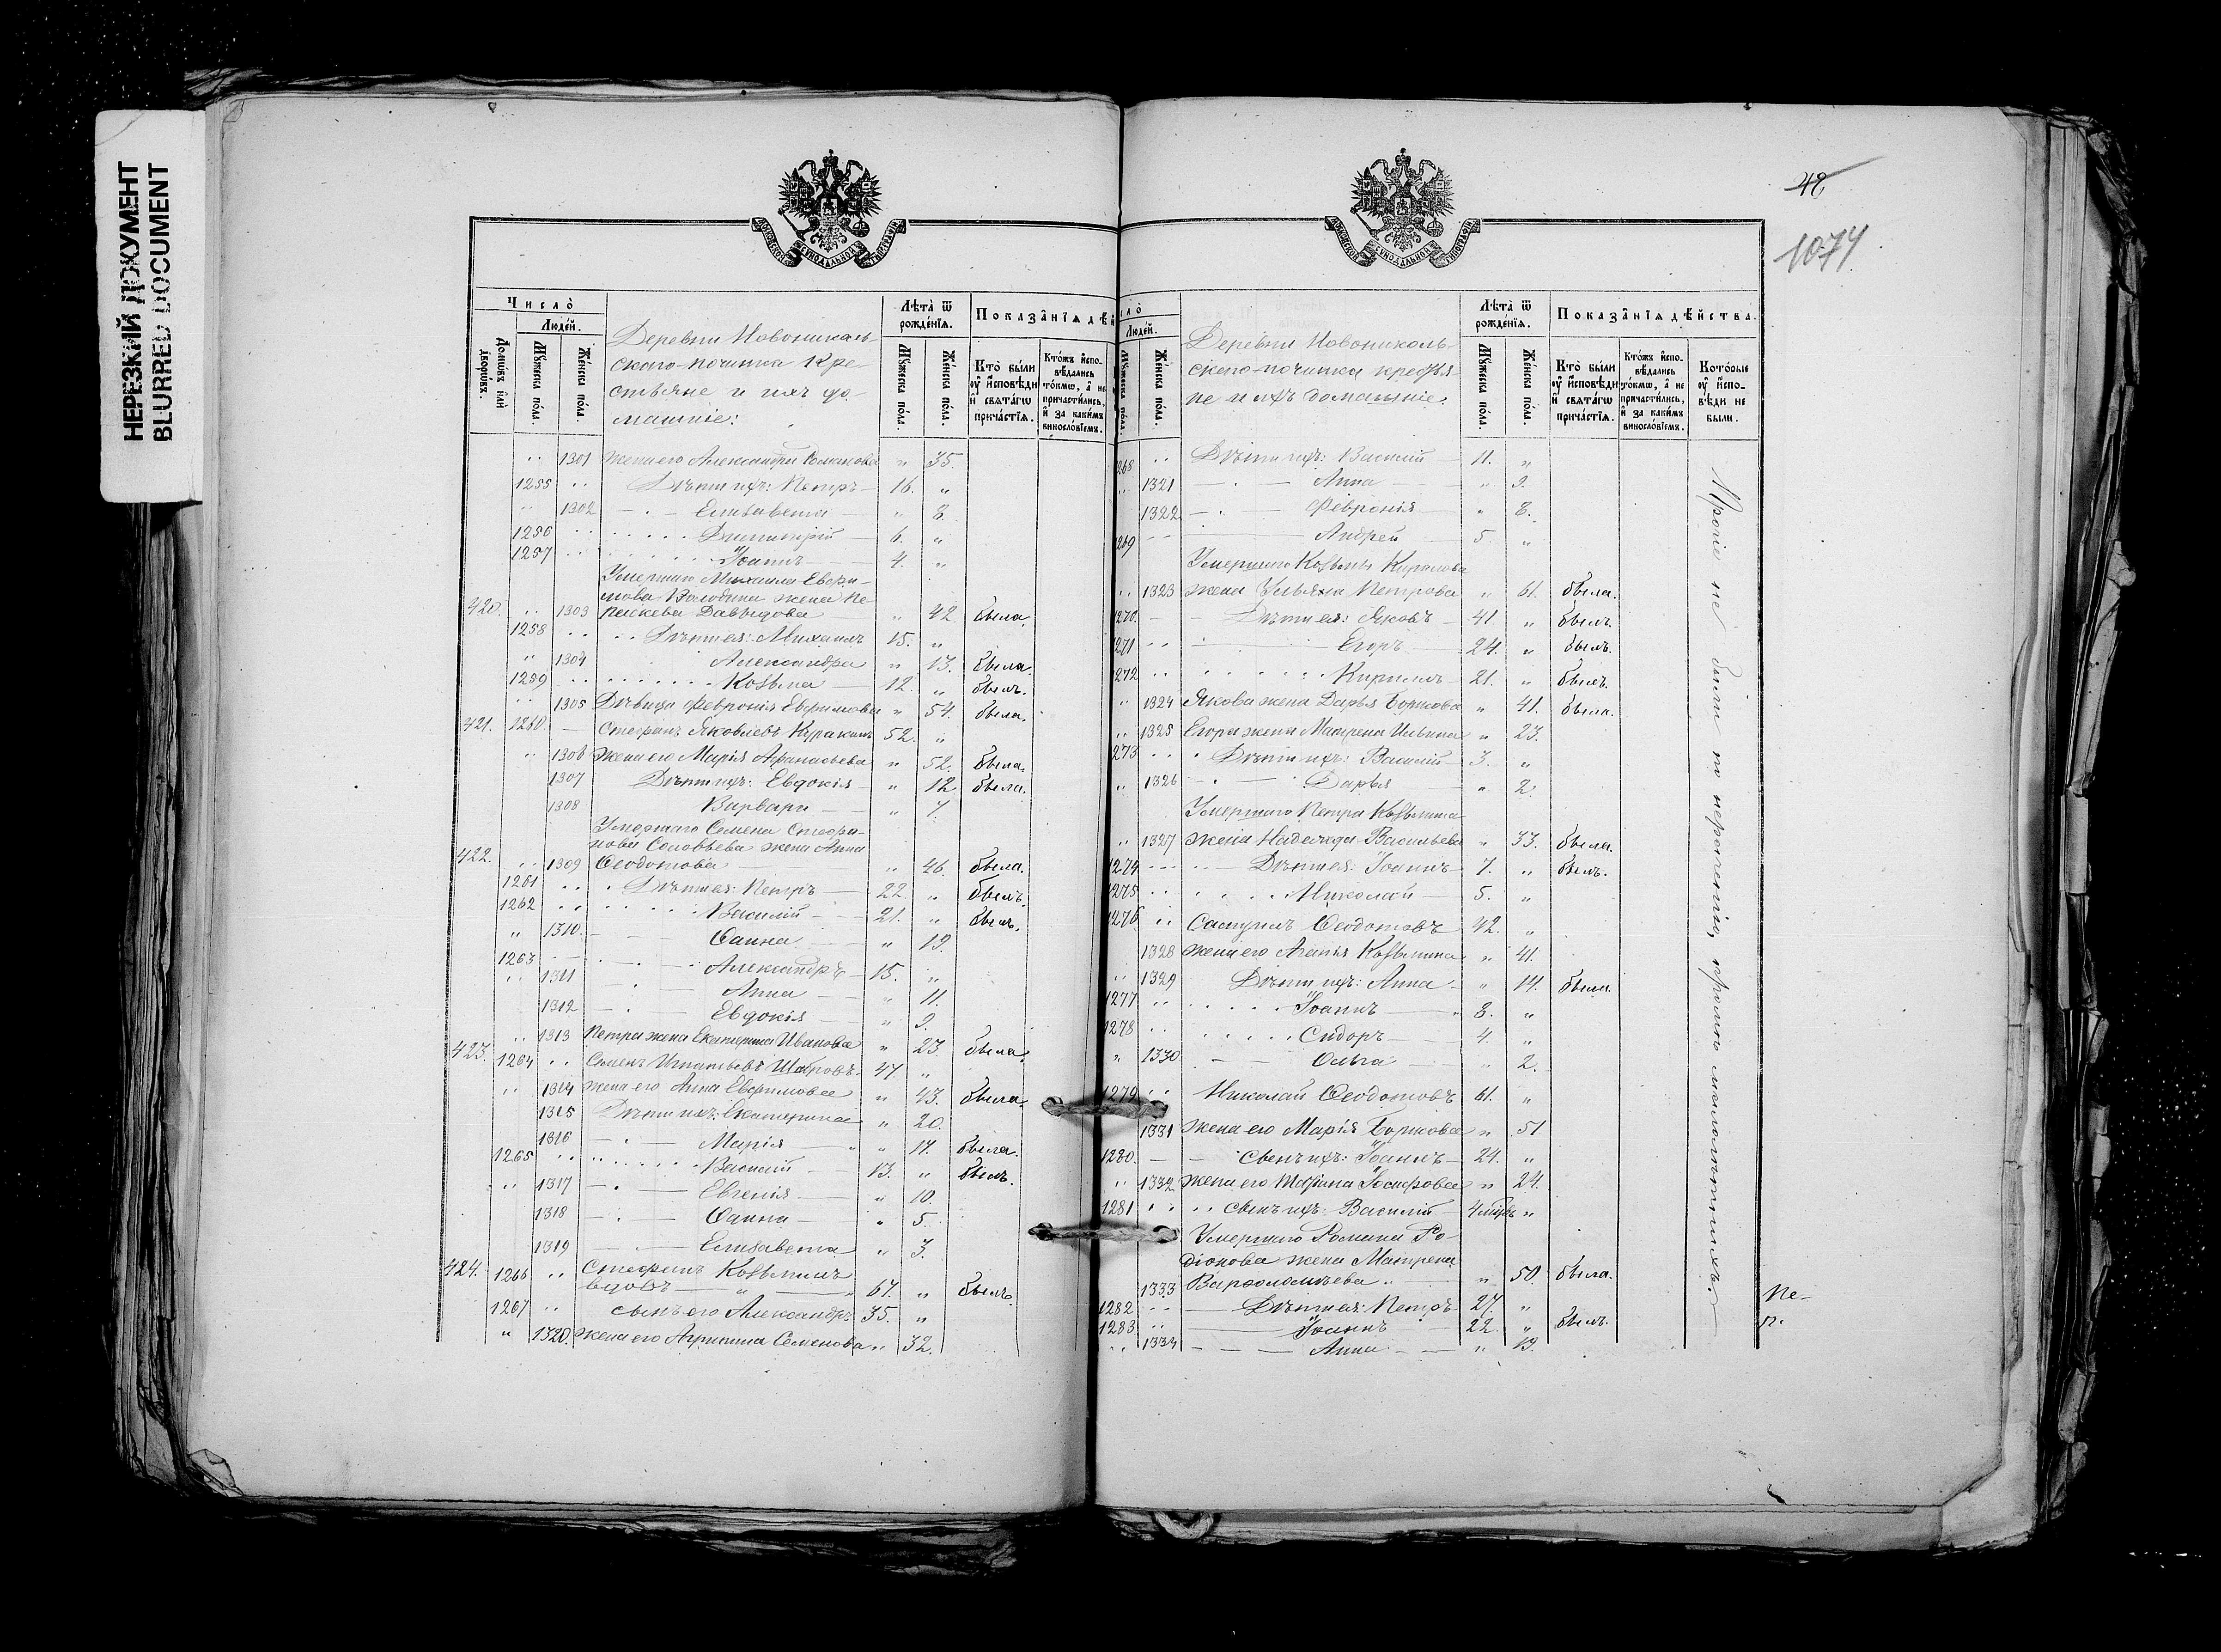 НЕРЕЗКИЙ ДОКУМЕНТ
BLURRED DOCUMENT
Число̀
Людей.
Домѡвъ или дворѡвъ.
Мꙋжеска пола.
Женска пола.
Деревни Новониколь-
скаго-починка кре-
стьяне и ихъ до-
машніе:
Лѣта ѿ рожденїѧ.
Мꙋжеска пола.
Женска пола.
Показанїѧ дѣй
Кто были ꙋ исповѣди и свѧтагѡ причастїѧ.
Ктожъ испо-вѣдались токмѡ, а не причастились, и за какимъ винословїемъ.
1301 жена его Александра Романова " 35.
1255 Дѣти ихъ: Петръ 16. "
1302 Елисавета " 8.
1256 Димитрій 6. "
1257 Іоаннъ 4. "
Умершаго Михаила Евфи-
мова Володина жена Па-
420. 1303 раскева Давыдова " 42 была.
1258 Дѣти ея: Михаилъ 15. "
1304 Александра " 13. была
1259 Козьма 12. " былъ.
1305 Дѣвица Февронія Евфимова " 54. была.
421. 1260. Стефанъ Яковлевъ Куракинъ 52. "
1306 Жена его Марія Афанасьева " 52. была.
1307 Дѣти ихъ: Евдокія " 12 была.
1308 Варвара " 7.
Умершаго Семена Стефа-
нова Соловьева жена Анна
422. 1309 Ѳеодотова " 46. была.
1261 Дѣти ея: Петръ 22. " былъ.
1262 Василій 21. " былъ.
1310. Фаина " 19.
1263 Александръ 15. "
1311 Анна " 11.
1312 Евдокія " 9.
1313 Петра жена Екатерина Иванова " 23. была.
423. 1264 Семенъ Игнатьевъ 47. "
1314 жена его Анна Евфимова " 43. была.
1315 Дѣти ихъ: Екатерина " 20.
1316 Марія " 17. была.
1265 Василій 13. " былъ.
1317 Евгенія " 10.
1318 Фаина " 5.
1319 Елисавета " 3.
424. 1266 Стефанъ Козьминъ
вдовъ 67. " былъ.
1267 сынъ его Александръ 35. "
1320. жена его Агрипина Семенова " 32.
48
1074
ло
Людей.
Мꙋжеска пола.
Женска пола.
Деревни Новониколь-
скаго-починка крестья-
не и ихъ домашніе.
Лѣта ѿ рожденїѧ.
Мꙋжеска пола.
Женска пола.
Показанїѧ дѣйства.
Кто были ꙋ исповѣди и свѧтагѡ причастїѧ.
Ктожъ испо-вѣдались токмѡ, а не причастились, и за какимъ винословїемъ.
Которые ꙋ испо-вѣди не были.
268 Дѣти ихъ: Василій 11. "
1321 Анна " 9.
1322 Февронія " 8.
269 Андрей 5. "
Умершаго Козьмы Кирилова
1323 жена Ульяна Петрова " 61. была.
1270. Дѣти ея: Яковъ 41 " былъ.
1271 Егоръ 24. " былъ.
1272 Кириллъ 21. " былъ.
1324 Якова жена Дарья Борисова " 41. была.
1325 Егора жена Матрена Ильина " 23.
273 Дѣти ихъ: Василій 3. "
1326 Дарья " 2.
Умершаго Петра Козьмина
1327 жена Надежда Васильева " 33. была.
1274 Дѣти ея: Іоаннъ 7. " былъ.
1275 Николай 5. "
1276 Ѳеодотовъ 42. "
1328 жена его Агапія Козьмина " 41.
1329 Дѣти ихъ: Анна " 14. была
1277 Іоаннъ 8. "
1278 Сидоръ 4. "
1330 Ольга " 2.
1279 Николай Ѳеодотовъ 61. "
1331 жена его Марія Борисова " 51
1280. сынъ ихъ: Іоаннъ 24. "
1332 жена его Марина Іосифова " 24.
1281 сынъ ихъ: Василій "
Умершаго Романа Ро-
діонова жена Матрена
1333 Варѳоломѣева " 50. была.
1282 Дѣти ея: Петръ 27. "
1283 Іоаннъ 22. " былъ.
1334 Анна " 19.
Прочіе не были по нераченію, кромѣ малолѣтнихъ.